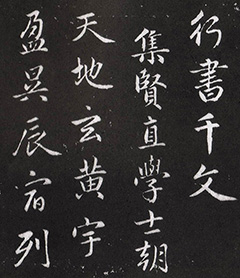 行書千文
集賢直學士朝
天地玄黄宇
盈昃辰宿列